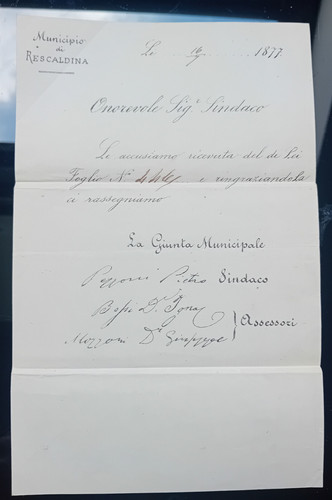 Municipio
di
RESCALDINA
Le 1877
Onorevole Sig.r Sindaco
Le accusiamo ricevuta del di Lei
Foglio N° e ringraziandola
ci rassegniamo
La Giunta Municipale
Pietro Sindaco
Dr
Assessori
Mozzoni Dr Giuseppe